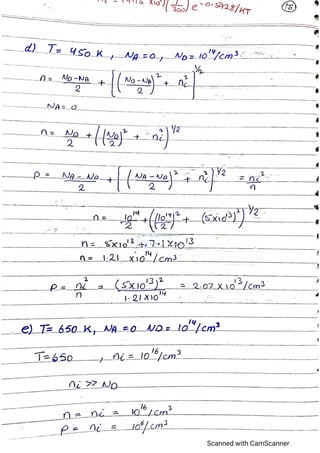 e^-0.5928/KT
d) T= 450 K, NA=0, ND= 10^14/cm^3
n = (ND-NA)/2 + [((ND-NA)/2)^2 + ni^2]^1/2
NA= 0
n = ND/2 + ((ND/2)^2 + ni^2)^1/2
P = (NA-ND)/2 + [((NA-ND)/2)^2 + ni^2]^1/2 = ni^2/n
n = 10^14/2 + ((10^14/2)^2 + (5x10^13)^2)^1/2
n = 5x10^13 + 7.1x10^13
n = 1.21 x10^14/cm^3
P = ni^2/n = (5x10^13)^2/1.21x10^14 = 2.07x10^13/cm^3
e) T= 650 K, NA=0 ND= 10^14/cm^3
T=650, ni = 10^16/cm^3
ni >> ND
n = ni = 10^16/cm^3
P = ni = 10^6/cm^3
Scanned with CamScanner